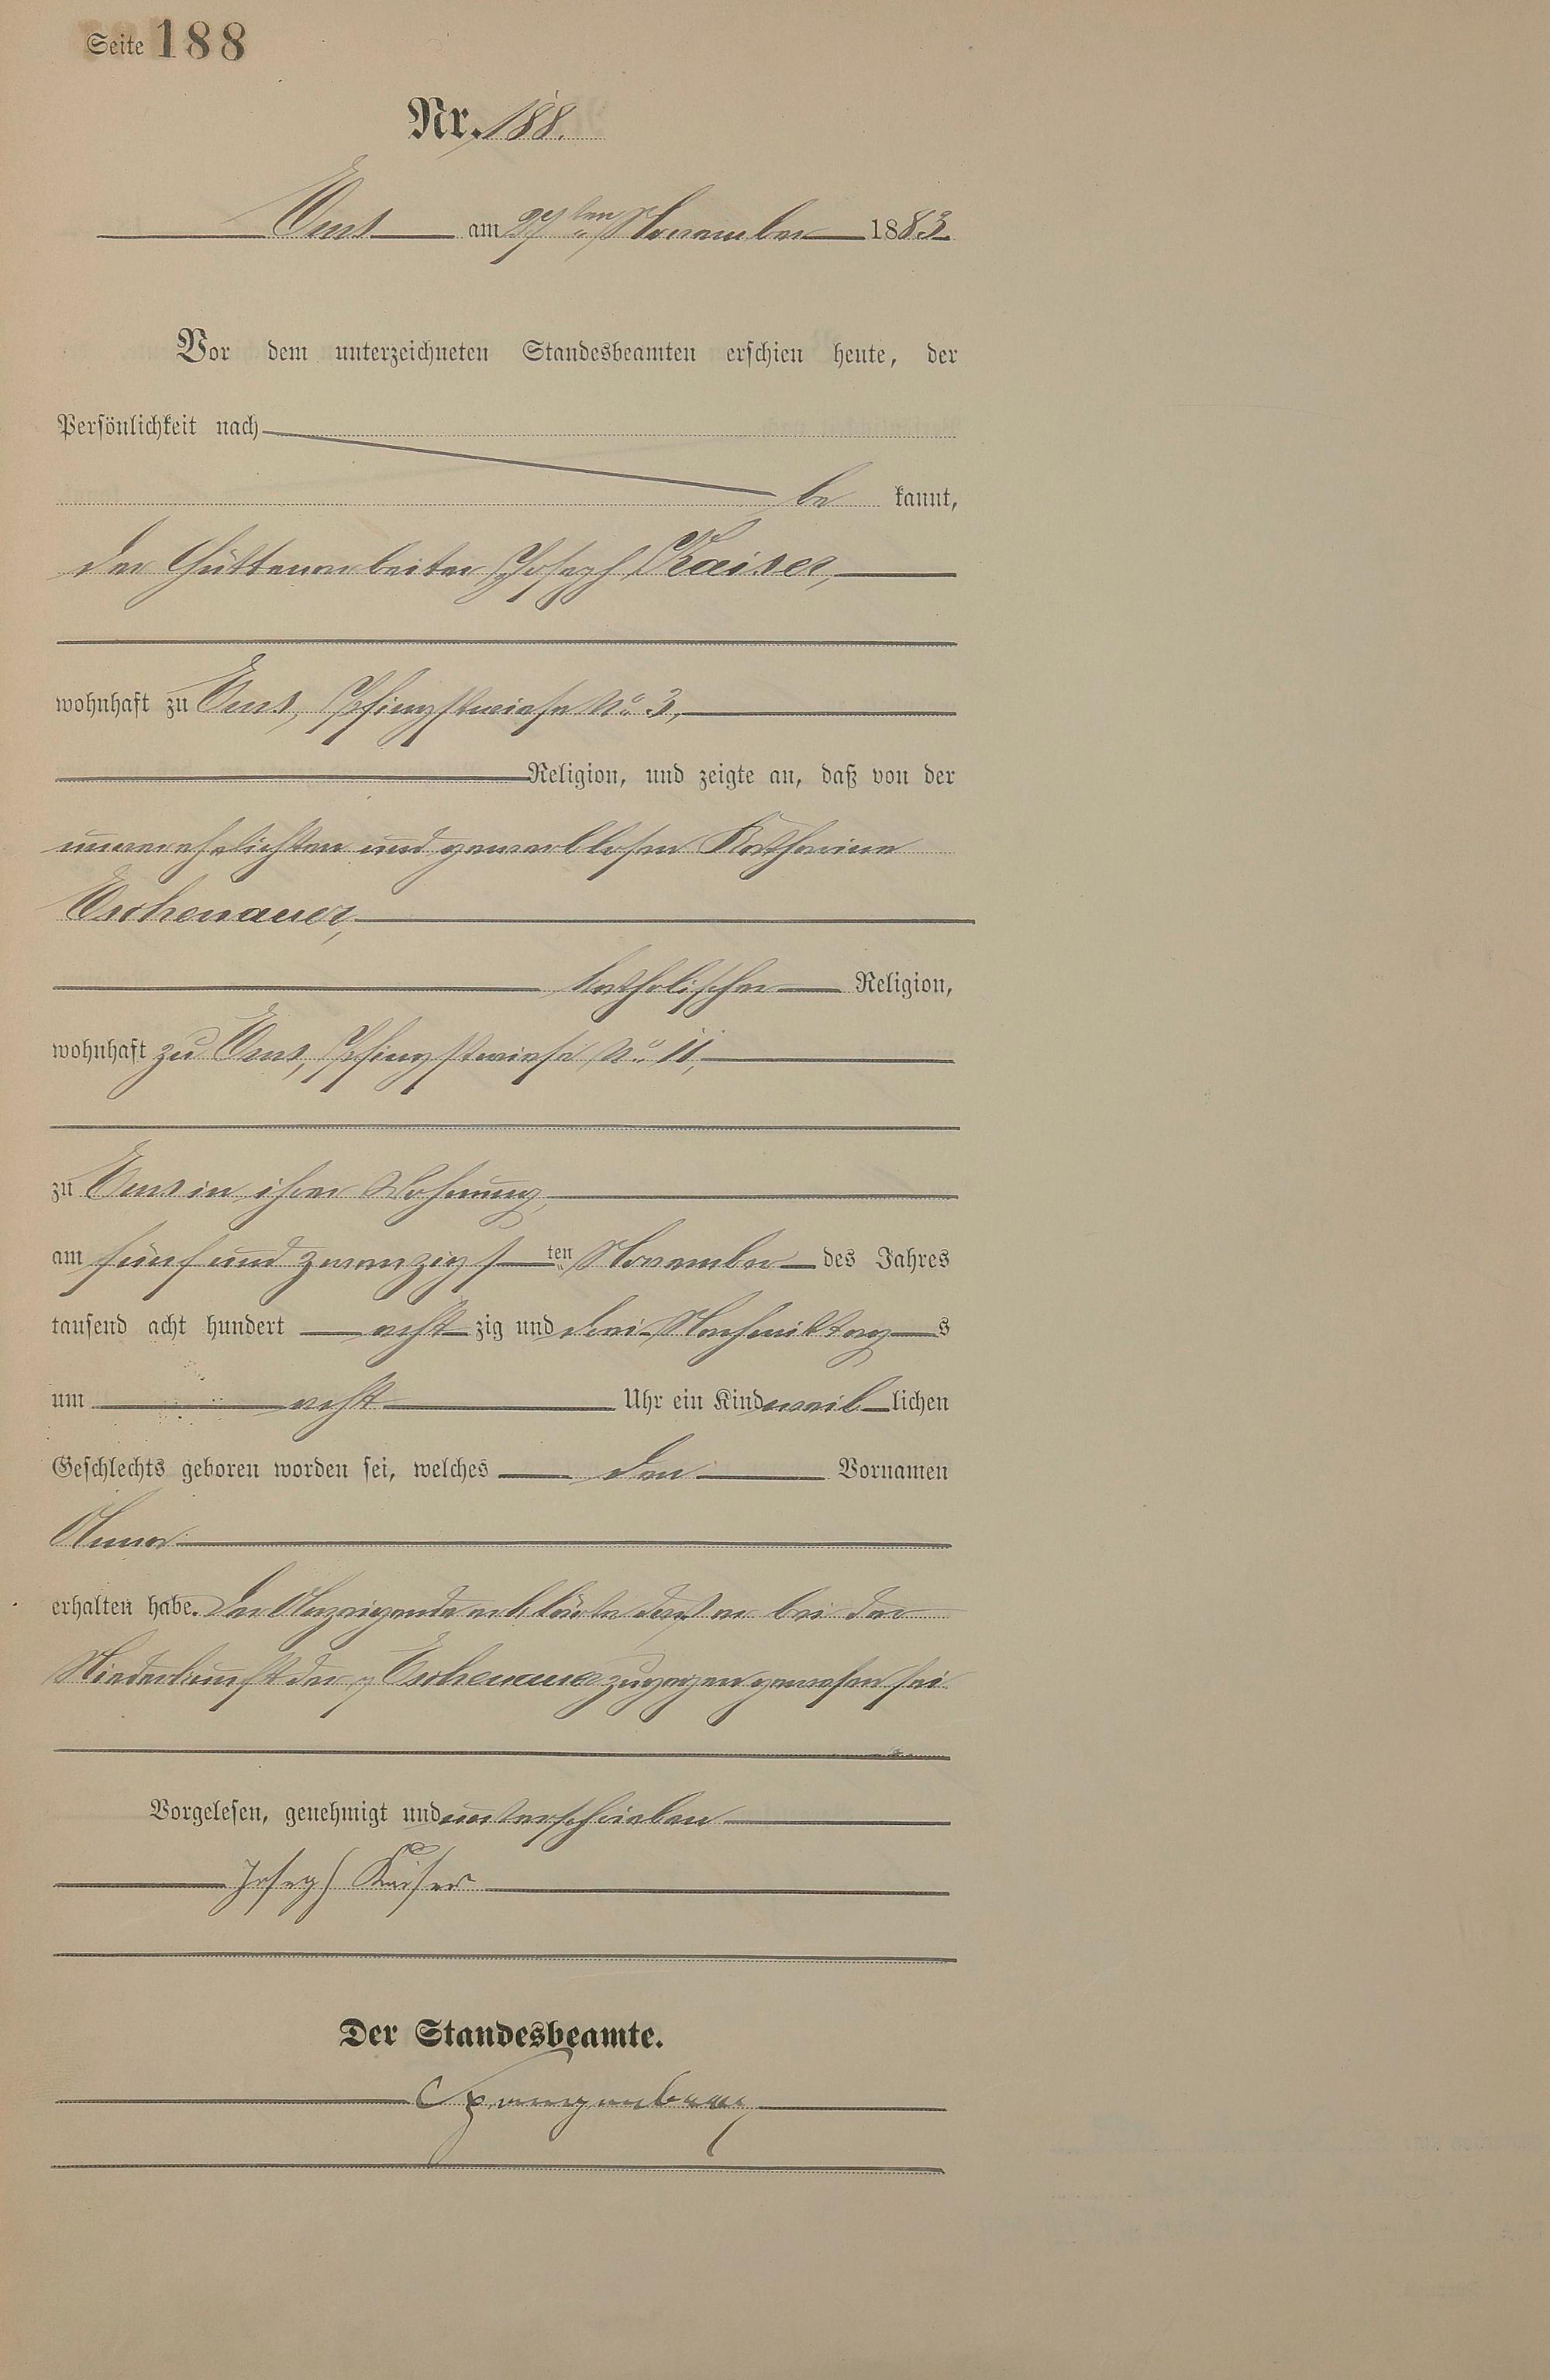 Seite 188
Nr. 188.
Ems am 27ten November 1883
Vor dem unterzeichneten Standesbeamten erschien heute, der
Persönlichkeit nach
be kannt,
der Hüttenarbeiter Joseph Kaiser,
wohnhaft zu Ems, Pfingstwiese No. 3,
Religion, und zeigte an, daß von der
unverehelichten und gewerblosen Katharina
Eschenauer,
katholischer Religion,
wohnhaft zu Ems, Pfingstwiese No. 11,
zu Ems in ihrer Wohnung,
am fünf und zwanzigsten November des Jahres
tausend acht hundert achtzig und drei Nachmittags
um acht Uhr ein Kind weiblichen
Geschlechts geboren worden sei, welches den Vornamen
Anna
erhalten habe. Der Anzeigende erklärte daß er bei der
Niederkunft der Eschenauer zugegen gewesen sei
Vorgelesen, genehmigt und unterschrieben
Joseph Kaiser
Der Standesbeamte.
Spangenberg